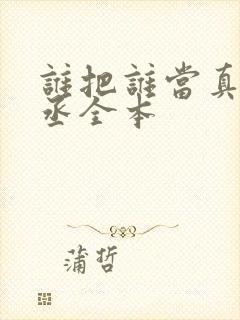 誰把誰當真
丞全本
蒲哲